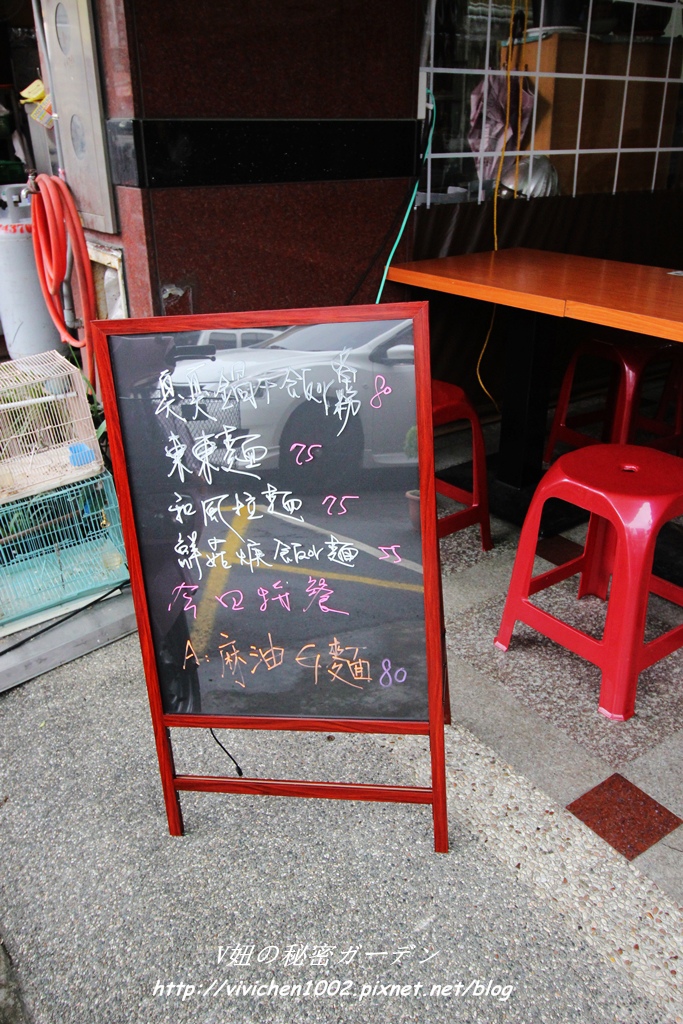 臭臭鍋+飯or粉 80
東東麵 75
和風拉麵 75
鮮菇燴飯or麵 55
今日特餐
A: 麻油 麵 80
V妞の秘密ガーデン
http://vivichen1002.pixnet.net/blog